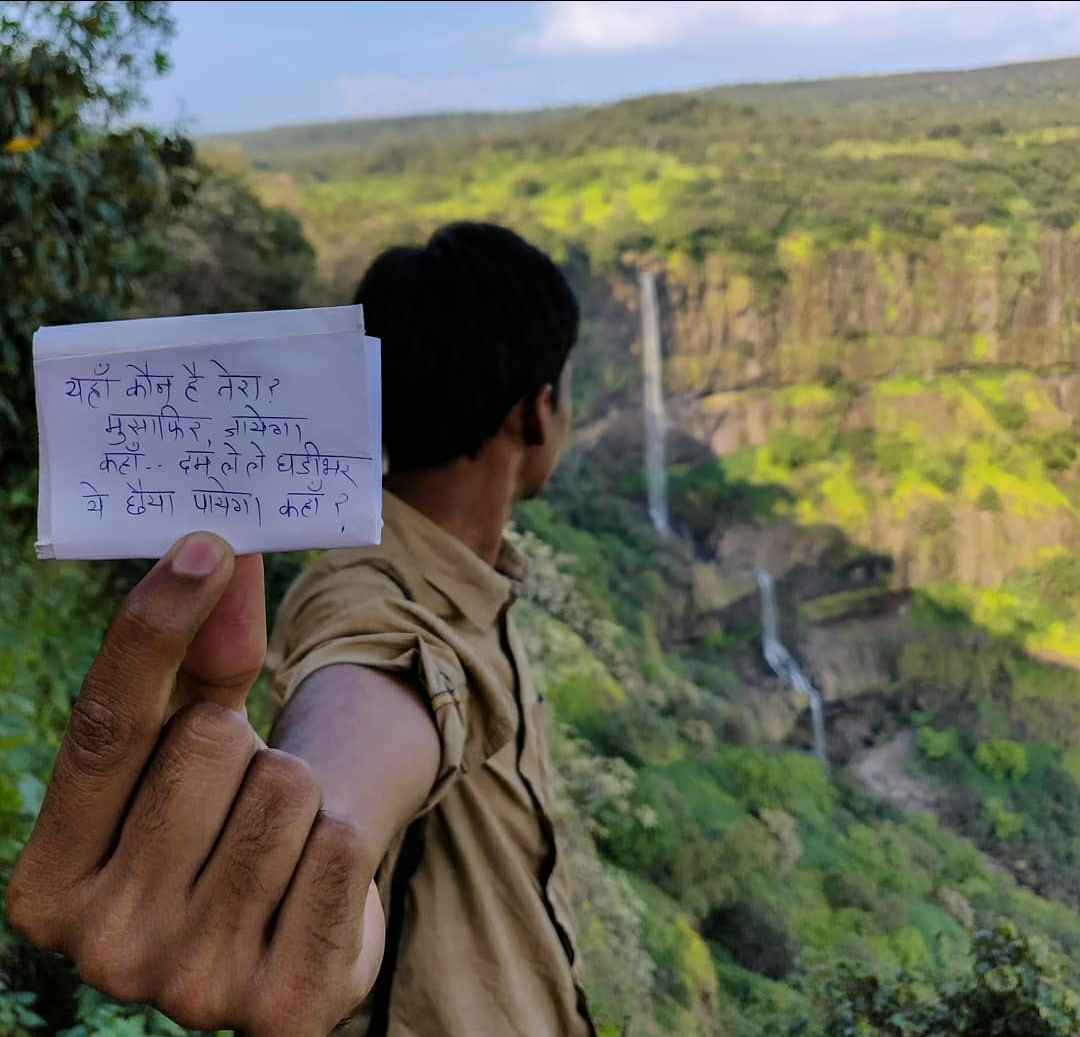 यहाँ कौन है तेरा?
मुसाफिर, जायेगा
कहाँ.. दम ले ले घडीभर
ये छैया पायेगा कहाँ?